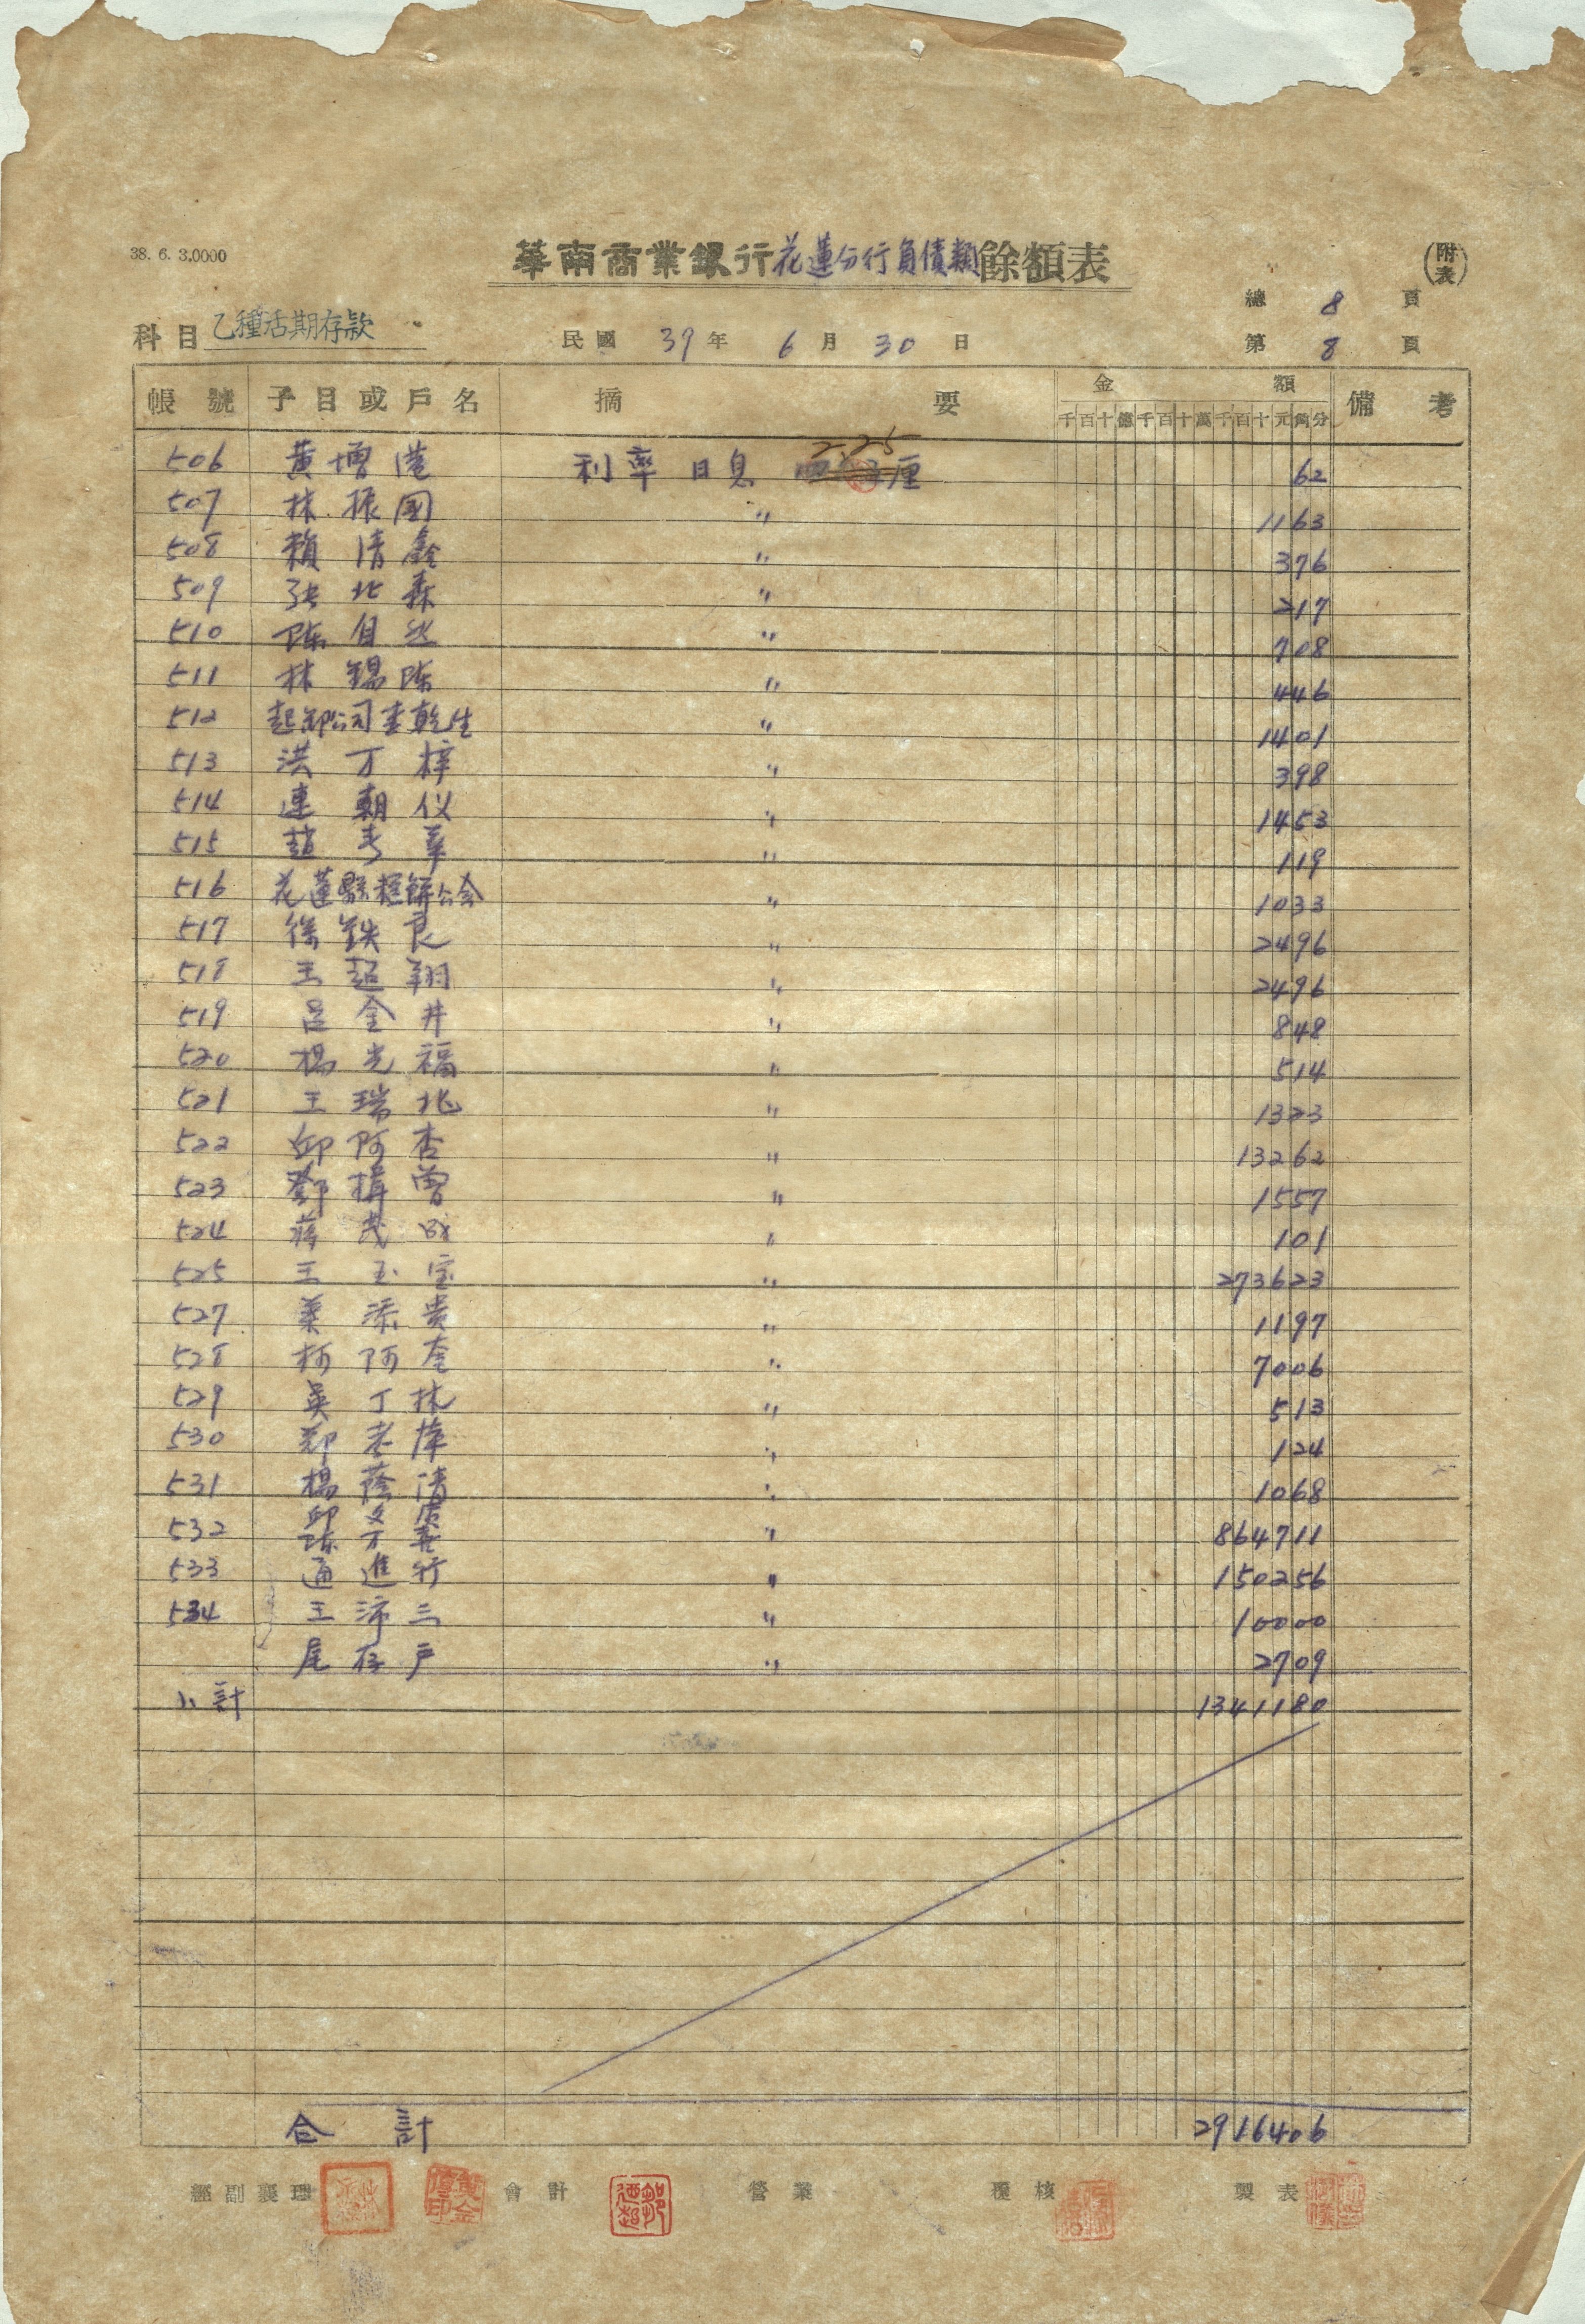 38. 6. 3.0000
華南商業銀行花蓮分行負債類餘額表
(附表)
總 8 頁
科目 乙種活期存款 民國 39年 6月 30日 第 8 頁
帳號 子目或戶名 摘要 金額 備考
千百十億千百十萬千百十元角分
506 黃增港 利率日息 2.25 厘 62
507 林振國 〃 1163
508 賴清鑫 〃 376
509 張北森 〃 217
510 陈自然 〃 708
511 林錫陈 〃 446
512 起卸公司李乾生 〃 1401
513 洪才梓 〃 398
514 連朝仪 〃 1453
515 趙秀華 〃 119
516 花蓮縣糕餅公会 〃 1033
517 徐鉄良 〃 2496
518 王超翔 〃 2496
519 呂金井 〃 848
520 楊光福 〃 514
521 王瑞北 〃 1323
522 邱阿杏 〃 13262
523 鄧揖曽 〃 1557
524 蒋茂 〃 101
525 王玉宝 〃 273623
527 葉添貴 〃 1197
528 柯阿奎 〃 7006
529 吳丁林 〃 513
530 鄭老 〃 124
531 楊蔭清 〃 1068
邱文
532 陈才 〃 864711
533 通進行 〃 150256
534 王沛三 〃 10000
尾存戸 〃 2709
小計 1341180
合計 2916406
經副襄理 會計 營業 覆核 製表